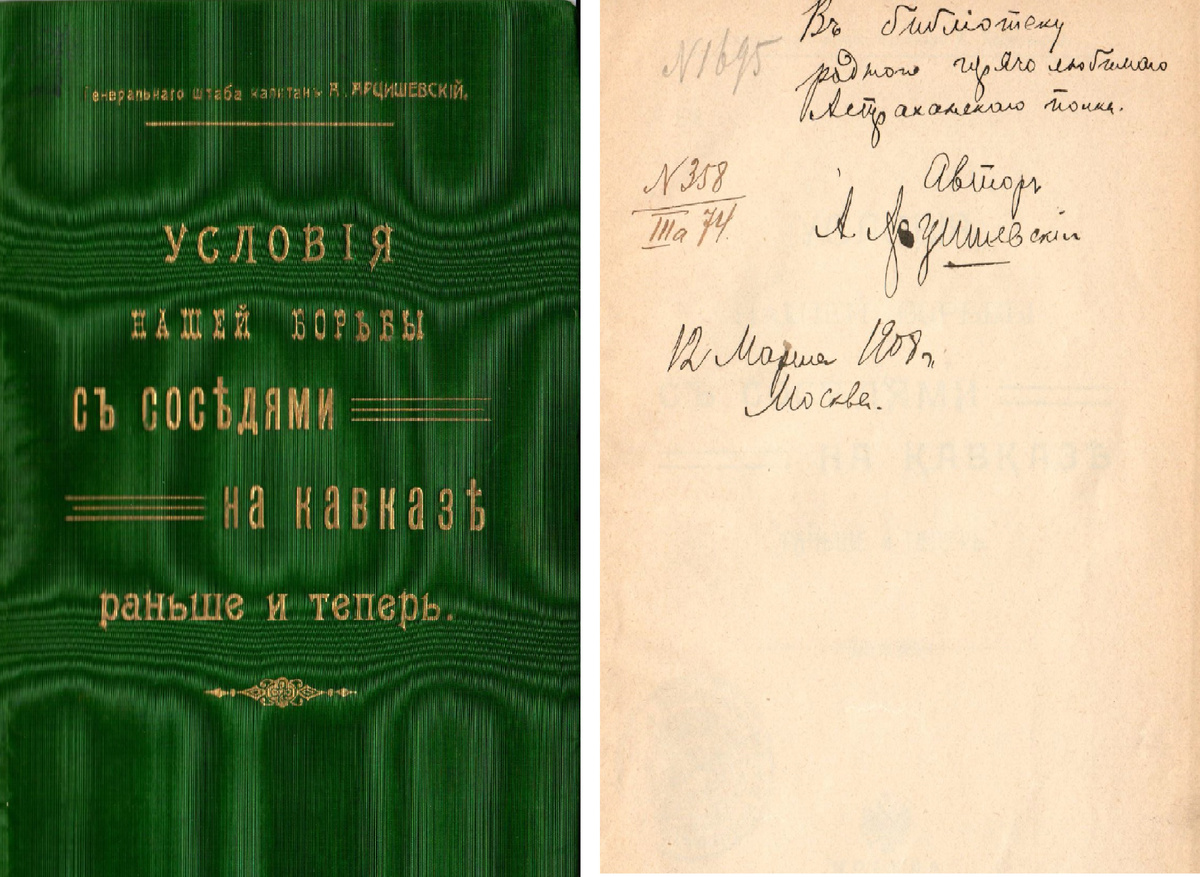 Генеральнаго штаба капитанъ А. АРЦИШЕВСКІЙ.
УСЛОВІЯ
НАШЕЙ БОРЬБЫ
СЪ СОСѢДЯМИ
НА КАВКАЗѢ
раньше и теперь.
N 1695
Въ библіотеку
родного горячо любимаго
Астраханскаго полка.
N 358
IIIа 74.
Авторъ
А. Арцишевскій
12 Марта 1908 г.
Москва.